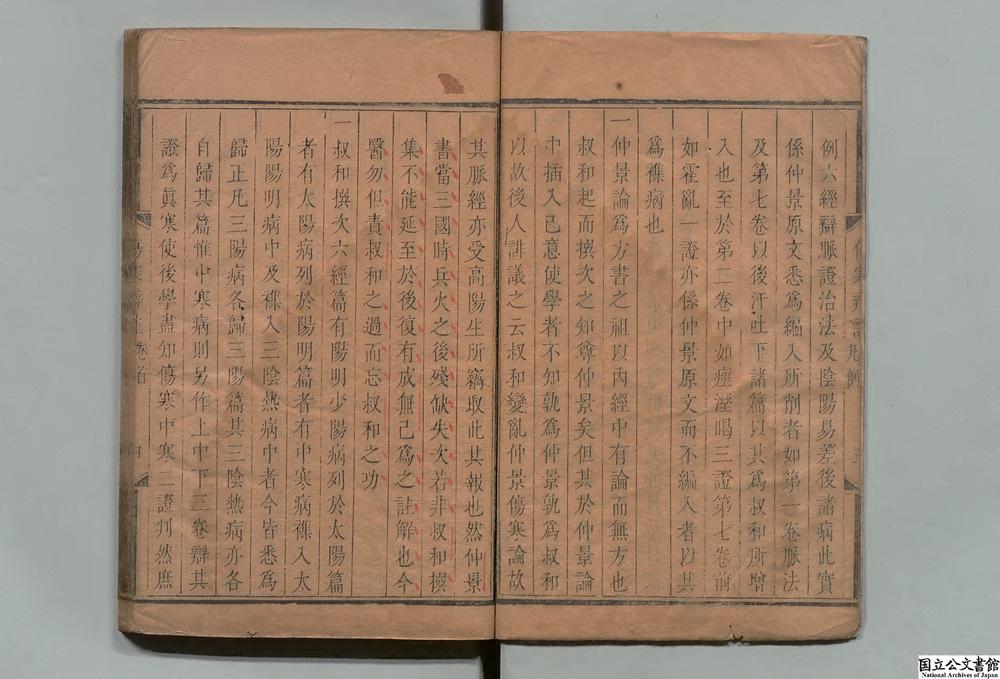 例六經辯脈證治法及陰陽易差後諸病此實
係仲景原文悉爲編入所削者如第一卷脈法
及第七卷以後汗吐下諸篇以其爲叔和所增
入也至於第二卷中如痙溼暍三證第七卷前
如霍亂一證亦係仲景原文而不編入者以其
爲襍病也
一仲景論爲方書之祖以內經中有論而無方也
叔和起而撰次之知尊仲景矣但其於仲景論
中插入己意使學者不知孰爲仲景孰爲叔和
以故後人誹議之云叔和變亂仲景傷寒論故
其脈經亦受高陽生所竊取此其報也然仲景
書當三國時兵火之後殘缺失次若非叔和撰
集不能延至於後復有成無己爲之註解也今
醫勿但責叔和之過而忘叔和之功
一叔和撰次六經篇有陽明少陽病列於太陽篇
者有太陽病列於陽明篇者有中寒病襍入太
陽陽明病中及襍入三陰熱病中者今皆悉爲
歸正凡三陽病各歸三陽篇其三陰熱病亦各
自歸其篇惟中寒病則另作上中下三卷辯其
證爲眞寒使後學盡知傷寒中寒二證判然庶
傷寒辯證 卷首
国立公文書館
National Archives of Japan